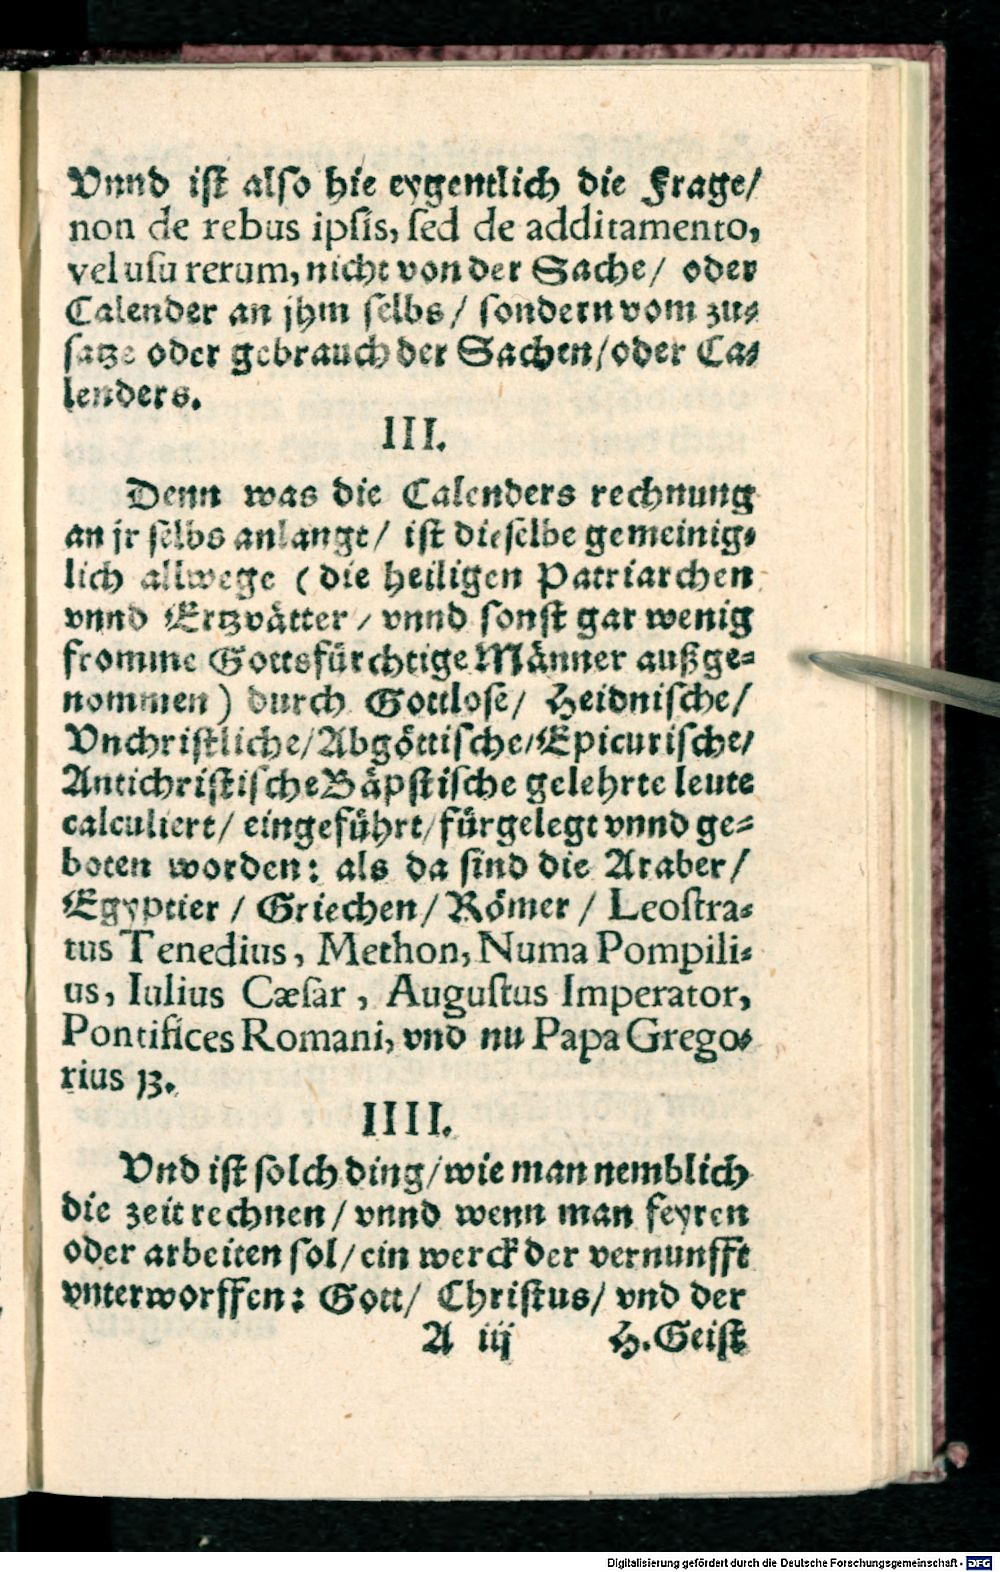 Vnnd ist also hie eygentlich die Frage/
non de rebus ipsis, sed de additamento,
vel usu rerum, nicht von der Sache/ oder
Calender an jhm selbs/ sondern vom zu-
satze oder gebrauch der Sachen/ oder Ca-
lenders.
III.
Denn was die Calenders rechnung
an jr selbs anlanget/ ist dieselbe gemeinig-
lich allwege (die heiligen Patriarchen
vnnd Ertzvätter/ vnnd sonst gar wenig
fromme Gottsfürchtige Männer außge-
nommen) durch Gottlose/ Heidnische/
Vnchristliche/ Abgöttische/ Epicurische/
Antichristische Bäpstische gelehrte leute
calculiert/ eingeführt/ fürgelegt vnnd ge-
boten worden: als da sind die Araber/
Egyptier/ Griechen/ Römer/ Leostra-
tus Tenedius, Methon, Numa Pompili-
us, Iulius Cæsar, Augustus Imperator,
Pontifices Romani, vnd nu Papa Grego-
rius 13.
IIII.
Vnd ist solch ding/ wie man nemblich
die zeit rechnen/ vnnd wenn man feyren
oder arbeiten sol/ ein werck der vernunfft
vnterworffen: Gott/ Christus/ vnd der
A iij H. Geist
Digitalisierung gefördert durch die Deutsche Forschungsgemeinschaft - DFG